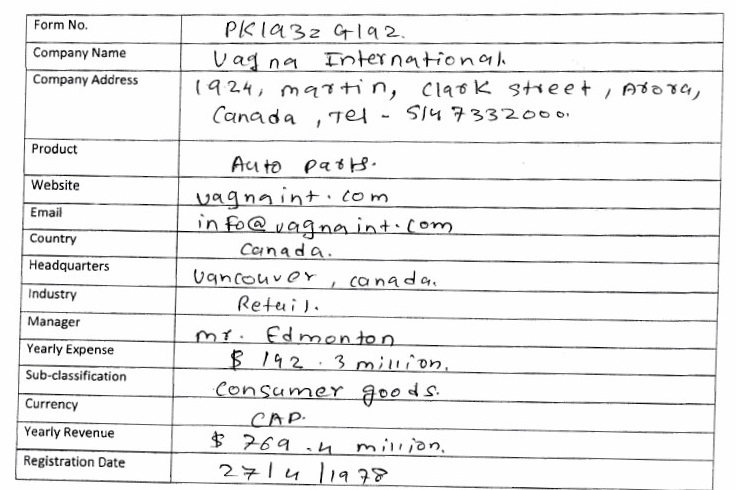 Form No. PK1932 G192.
Company Name Vagna International.
Company Address 1924, martin, Clark street, Arora,
Canada, Tel - 514 7332000.
Product Auto parts.
Website vagnaint.com
Email info@vagnaint.com
Country Canada.
Headquarters Vancouver, canada.
Industry Retail.
Manager mr. Edmonton
Yearly Expense $ 192.3 million.
Sub-classification Consumer goods.
Currency CAD.
Yearly Revenue $ 769.4 million.
Registration Date 27/4/1978